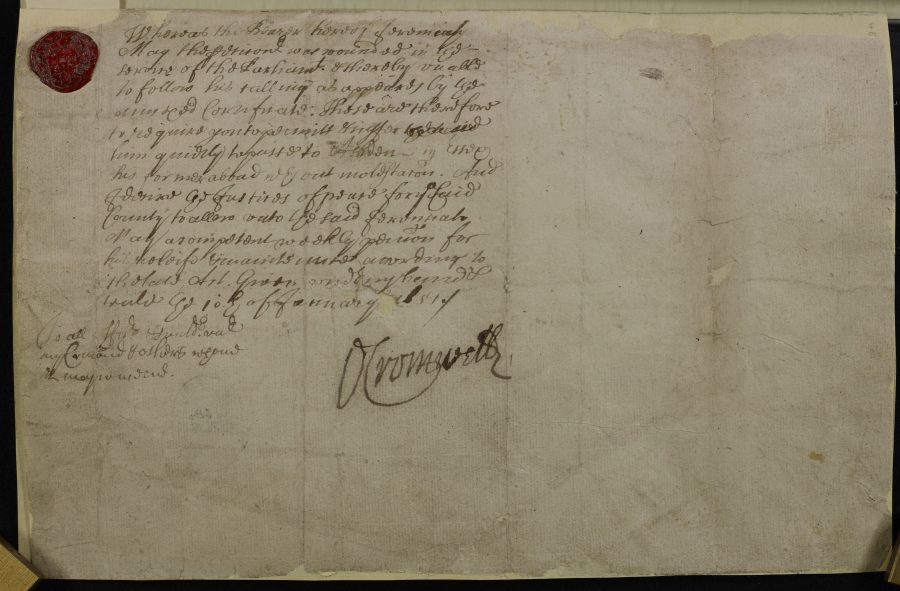 Whereas the Bearer hereof Jeremiah
May the person was wounded in ye
service of the Parliamt & thereby unable
to follow his calling as appeares by ye
annexed Certificate. These are therefore
to require you to permitt & suffer
him quietly to passe to in Essex
his former aboad wthout molestation. And
I desire ye Justices of peace for ye said
County to allow unto ye said Jeremiah
May a competent weekly pension for
his releife & maintenance according to
the late Act. Given undr my hand &
seale ye 10th of January
To all Officrs & Souldrs undr
my Comand & others whome
it may concerne.
OCromwell